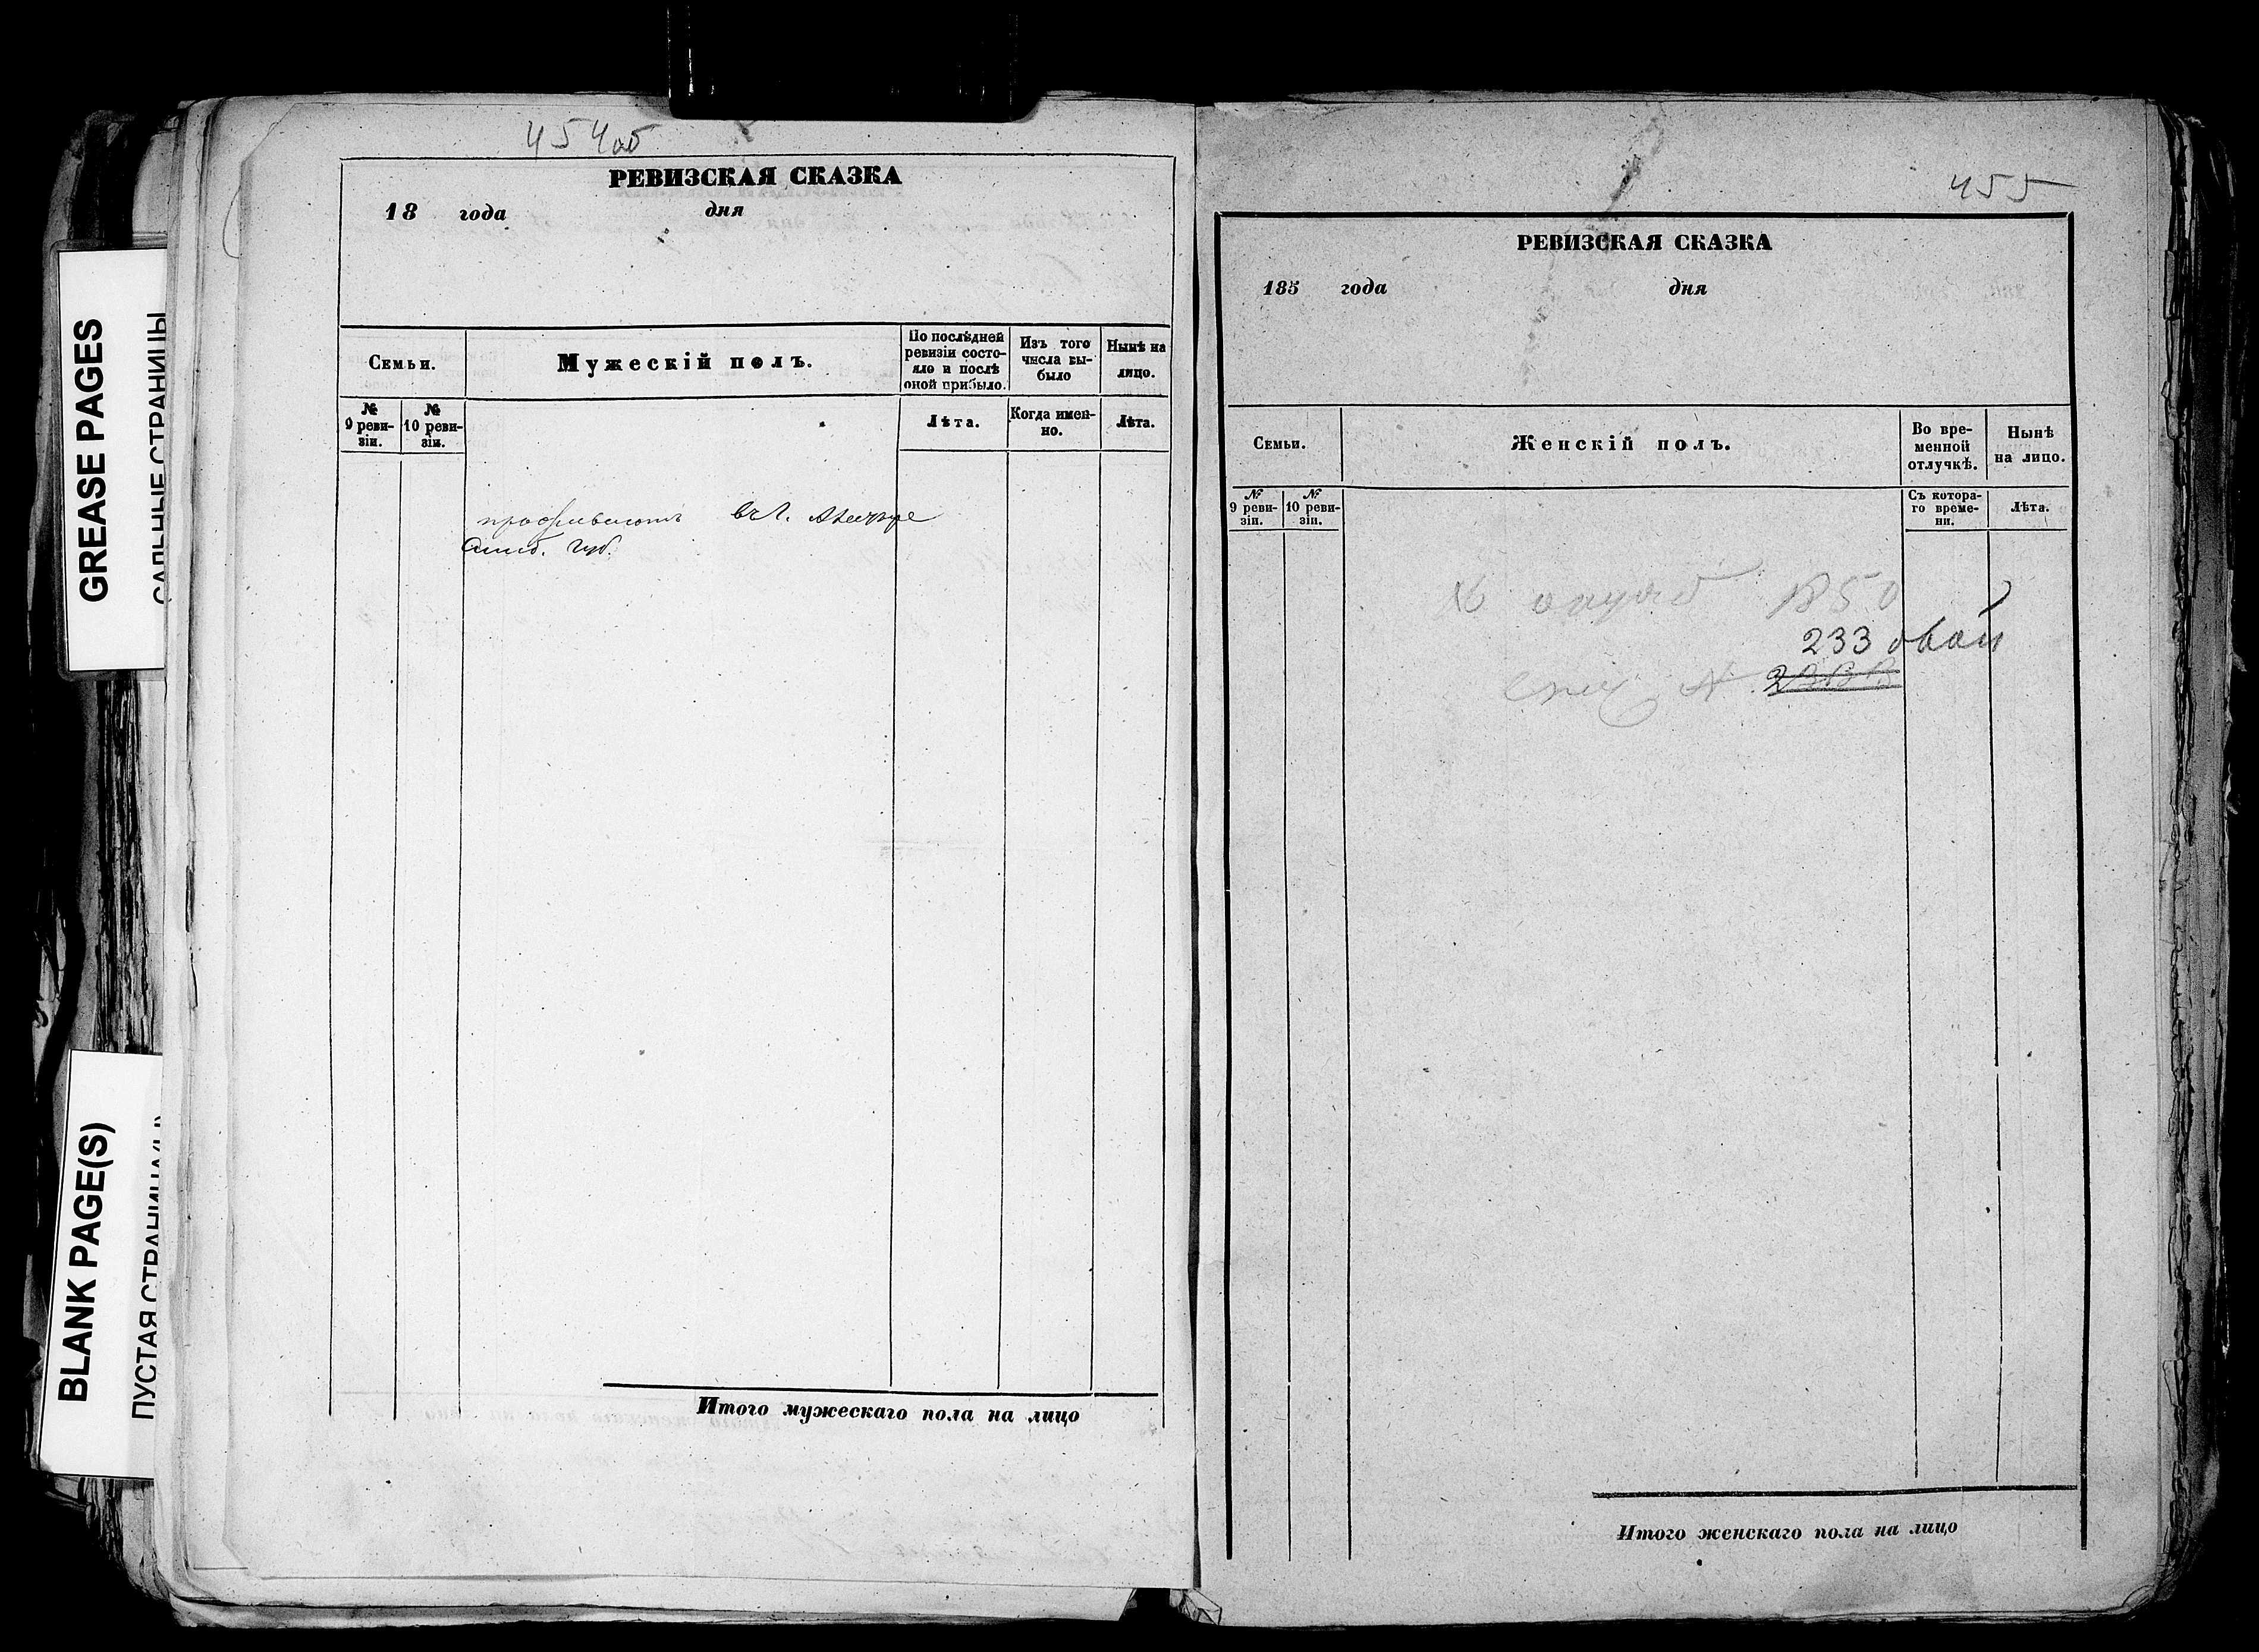 GREASE PAGES
САЛЬНЫЕ СТРАНИЦЫ
BLANK PAGE(S)
ПУСТАЯ СТРАНИЦА(Ы)
454об
РЕВИЗСКАЯ СКАЗКА
18 года дня
Семьи.
Мужескій полъ.
По послѣдней ревизіи состояло и послѣ оной прибыло.
Изъ того числа выбыло
Нынѣ на лицо.
№ 9 ревизіи.
№ 10 ревизіи.
Лѣта.
Когда именно.
Лѣта.
проживаютъ въ г.
Симб. губ.
Итого мужескаго пола на лицо
455
РЕВИЗСКАЯ СКАЗКА
185 года дня
Семьи.
Женскій полъ.
Во временной отлучкѣ.
Нынѣ на лицо.
№ 9 ревизіи.
№ 10 ревизіи.
Съ котораго времени.
Лѣта.
1850
233
Итого женскаго пола на лицо